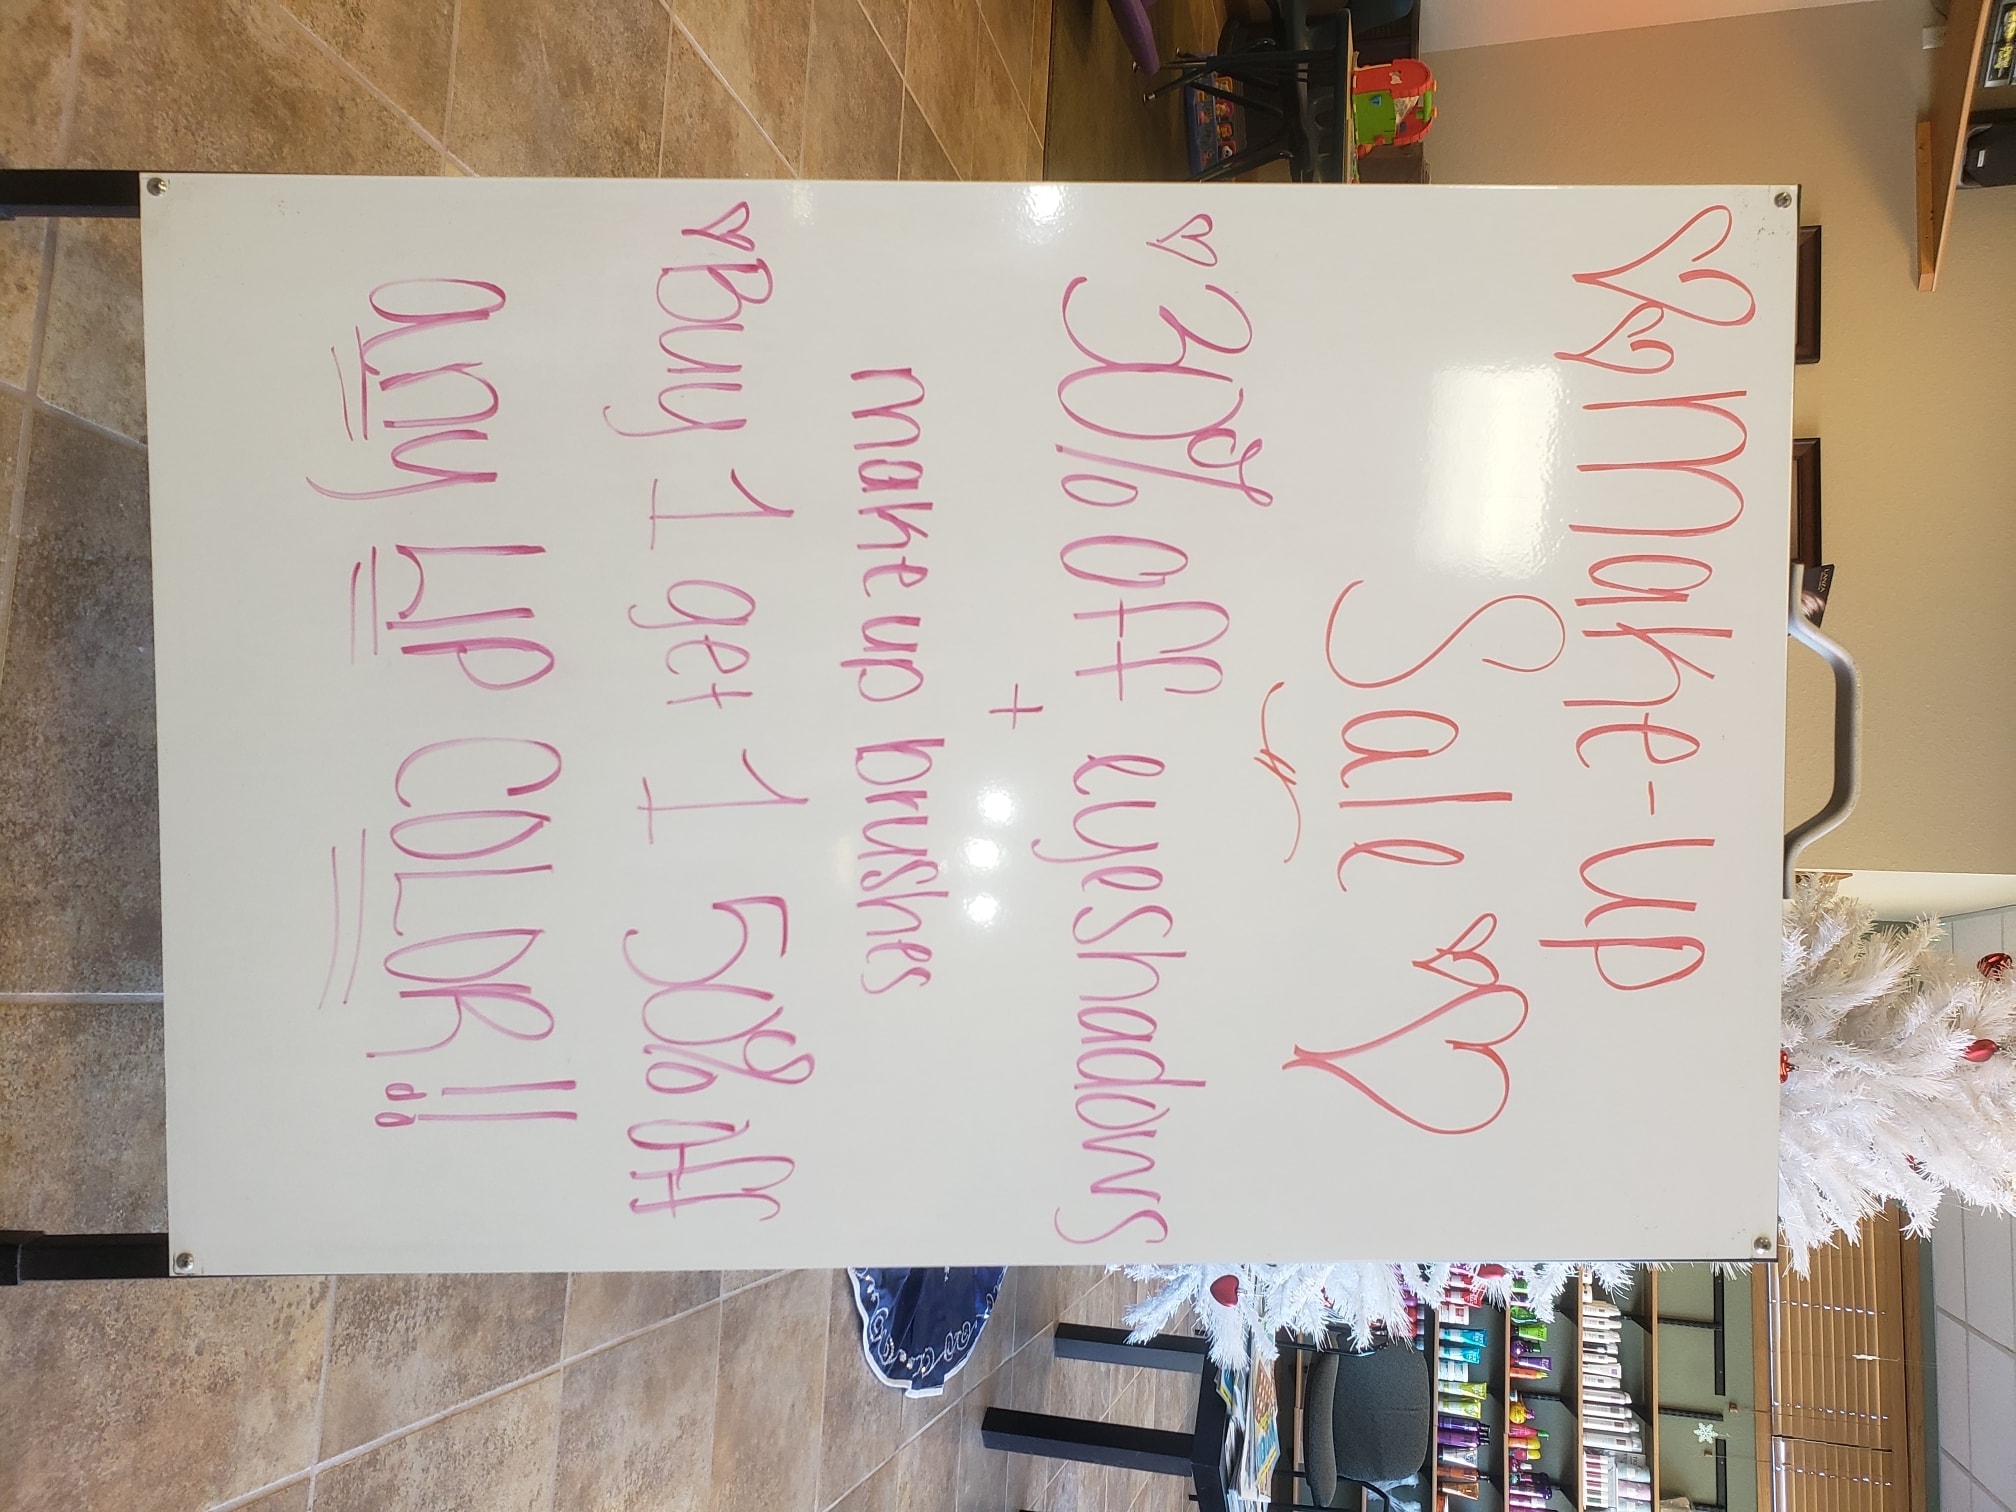 Make-up
Sale
30% off eyeshadows
+
makeup brushes
Buy 1 get 1 50% off
any LIP COLOR!!